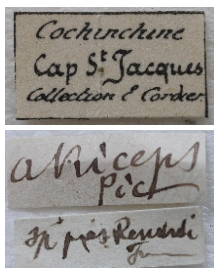 Cochinchine
Cap St Jacques
Collection E Cordier
atriceps
Pic
sp près